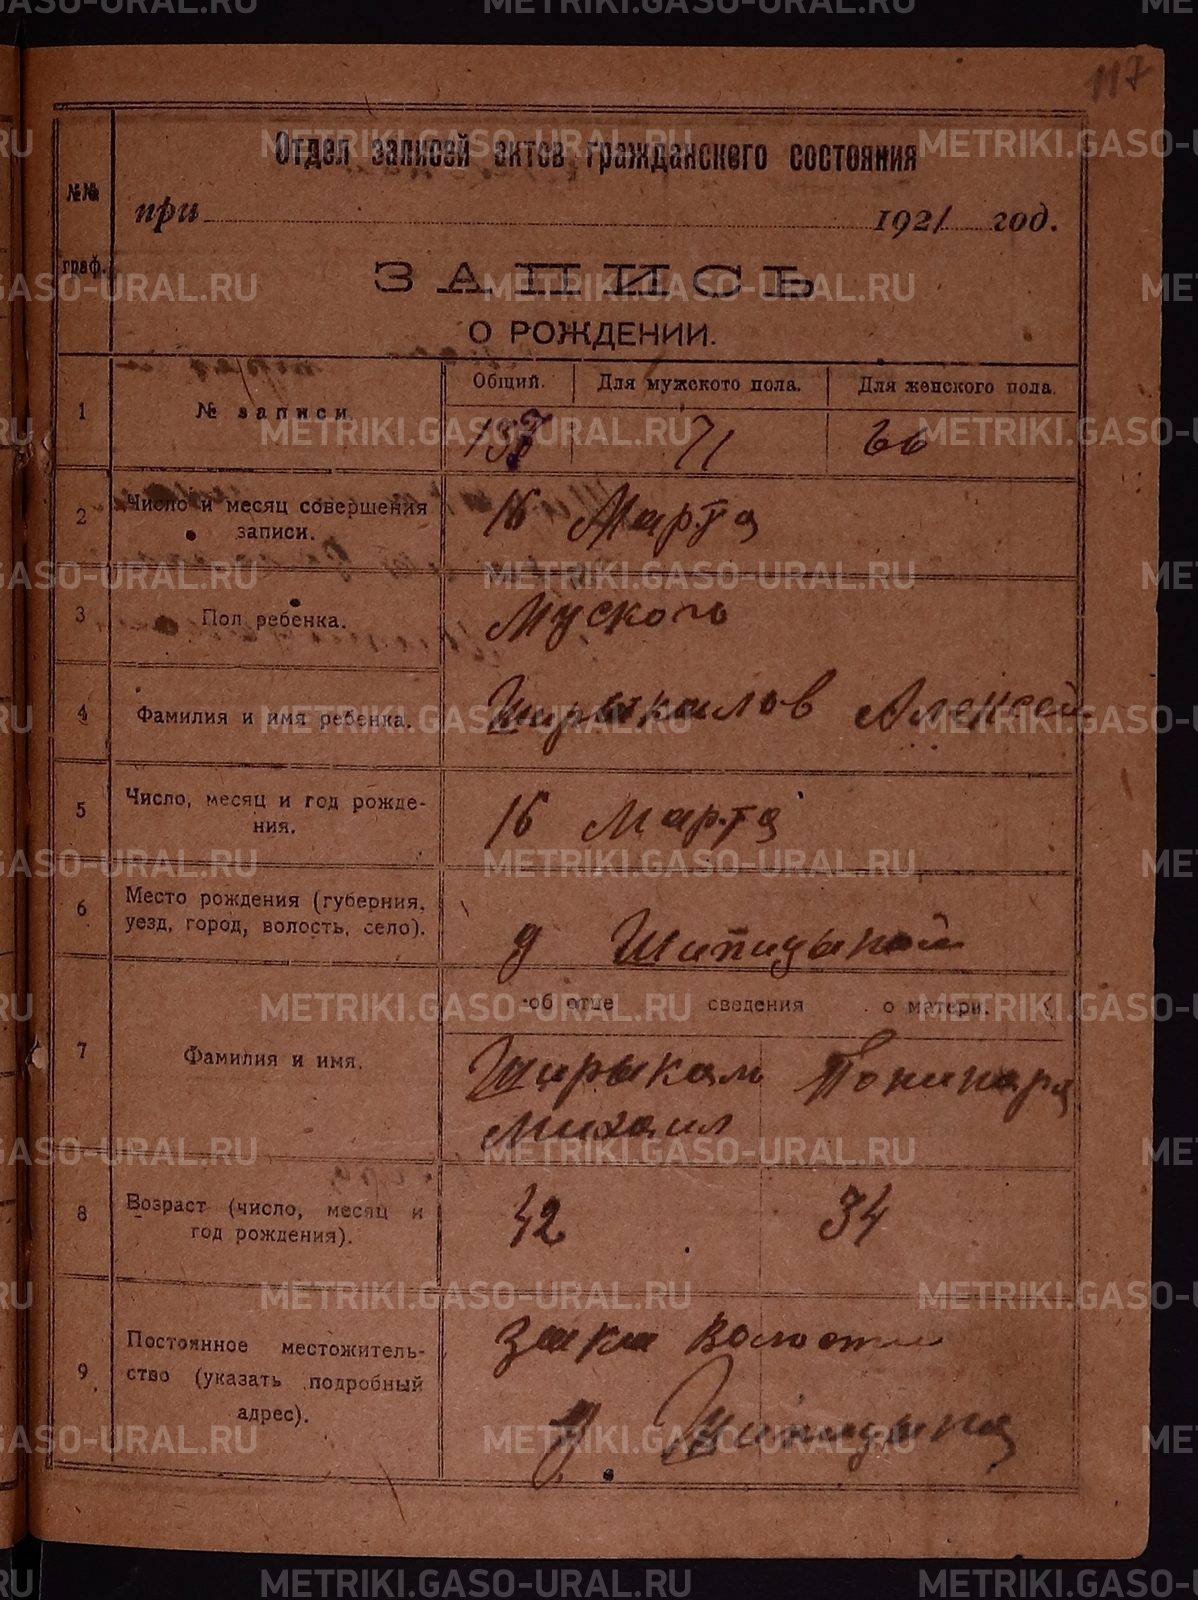 117
Отдел записей актов гражданского состояния
№№ граф.
при 1921 год.
ЗАПИСЬ
О РОЖДЕНИИ.
Общий. Для мужского пола. Для женского пола.
1 № записи. 137 71 66
2 Число и месяц совершения записи. 16 Марта
3 Пол ребенка.
4 Фамилия и имя ребенка. Ширыкалов Алексей
5 Число, месяц и год рожде-
ния. 16 Марта
6 Место рождения (губерния,
уезд, город, волость, село). д Шипицыной
об отце сведения о матери.
7 Фамилия и имя. Ширыкал
Михаил
8 Возраст (число, месяц и
год рождения). 42 34
9 Постоянное местожитель-
ство (указать подробный
адрес). волости
д Шипицына
METRIKI.GASO-URAL.RU